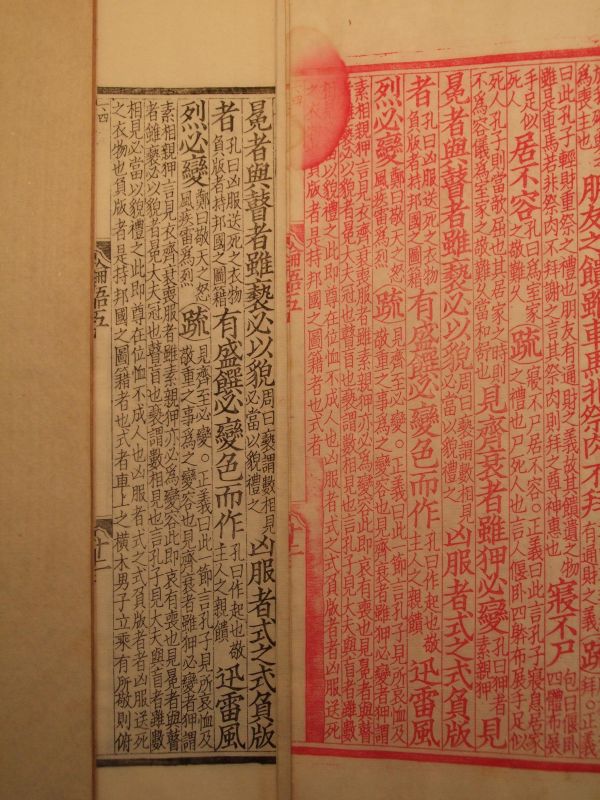 為喪主也
朋友之饋雖車馬非祭肉不拜
有通財之義
疏
曰此孔子輕財重祭之禮也朋友有通財之義故其饋遺之物
雖是車馬若非祭肉不拜謝之言其祭肉則拜之尊神惠也
寢不尸
包曰偃臥
四體布展
手足似
死人
居不容
孔曰為室家
之敬難久
疏
寢不尸居不容。正義曰此言孔子寢息居家
之禮也尸死人也言人偃臥四體布展手足似
死人孔子則當欹屈也其居家之時則
不為容儀為室家之敬難久當和舒也
見齊衰者雖狎必變
孔曰狎者
素親狎
見
冕者與瞽者雖褻必以貌
周曰褻謂數相見
必當以貌禮之
凶服者式之式負版
者
孔曰凶服送死之衣物
負版者持邦國之圖籍
有盛饌必變色而作
孔曰作起也敬
主人之親饋
迅雷風
烈必變
鄭曰敬天之怒
風疾雷為烈
疏
見齊至必變。正義曰此一節言孔子見所哀恤及
敬重之事為之變容也見齊衰者雖狎必變者狎謂
素相親狎言見衣齊衰喪服者雖素親狎亦必為變容此即哀有喪也見冕者與瞽
者雖褻必以貌者冕大夫冠也瞽盲也褻謂數相見也言孔子見大夫與盲者雖數
之衣物也負版者是持邦國之圖籍
論語五
十二
冕者與瞽者雖褻必以貌
周曰褻謂數相見
必當以貌禮之
凶服者式之式負版
者
孔曰凶服送死之衣物
負版者持邦國之圖籍
有盛饌必變色而作
孔曰作起也敬
主人之親饋
迅雷風
烈必變
鄭曰敬天之怒
風疾雷為烈
疏
見齊至必變。正義曰此一節言孔子見所哀恤及
敬重之事為之變容也見齊衰者雖狎必變者狎謂
素相親狎言見衣齊衰喪服者雖素親狎亦必為變容此即哀有喪也見冕者與瞽
者雖褻必以貌者冕大夫冠也瞽盲也褻謂數相見也言孔子見大夫與盲者雖數
相見必當以貌禮之此即尊在位恤不成人也凶服者式之式負版者者凶服送死
之衣物也負版者是持邦國之圖籍者也式者車上之橫木男子立乘有所敬則俯
論語五
十二